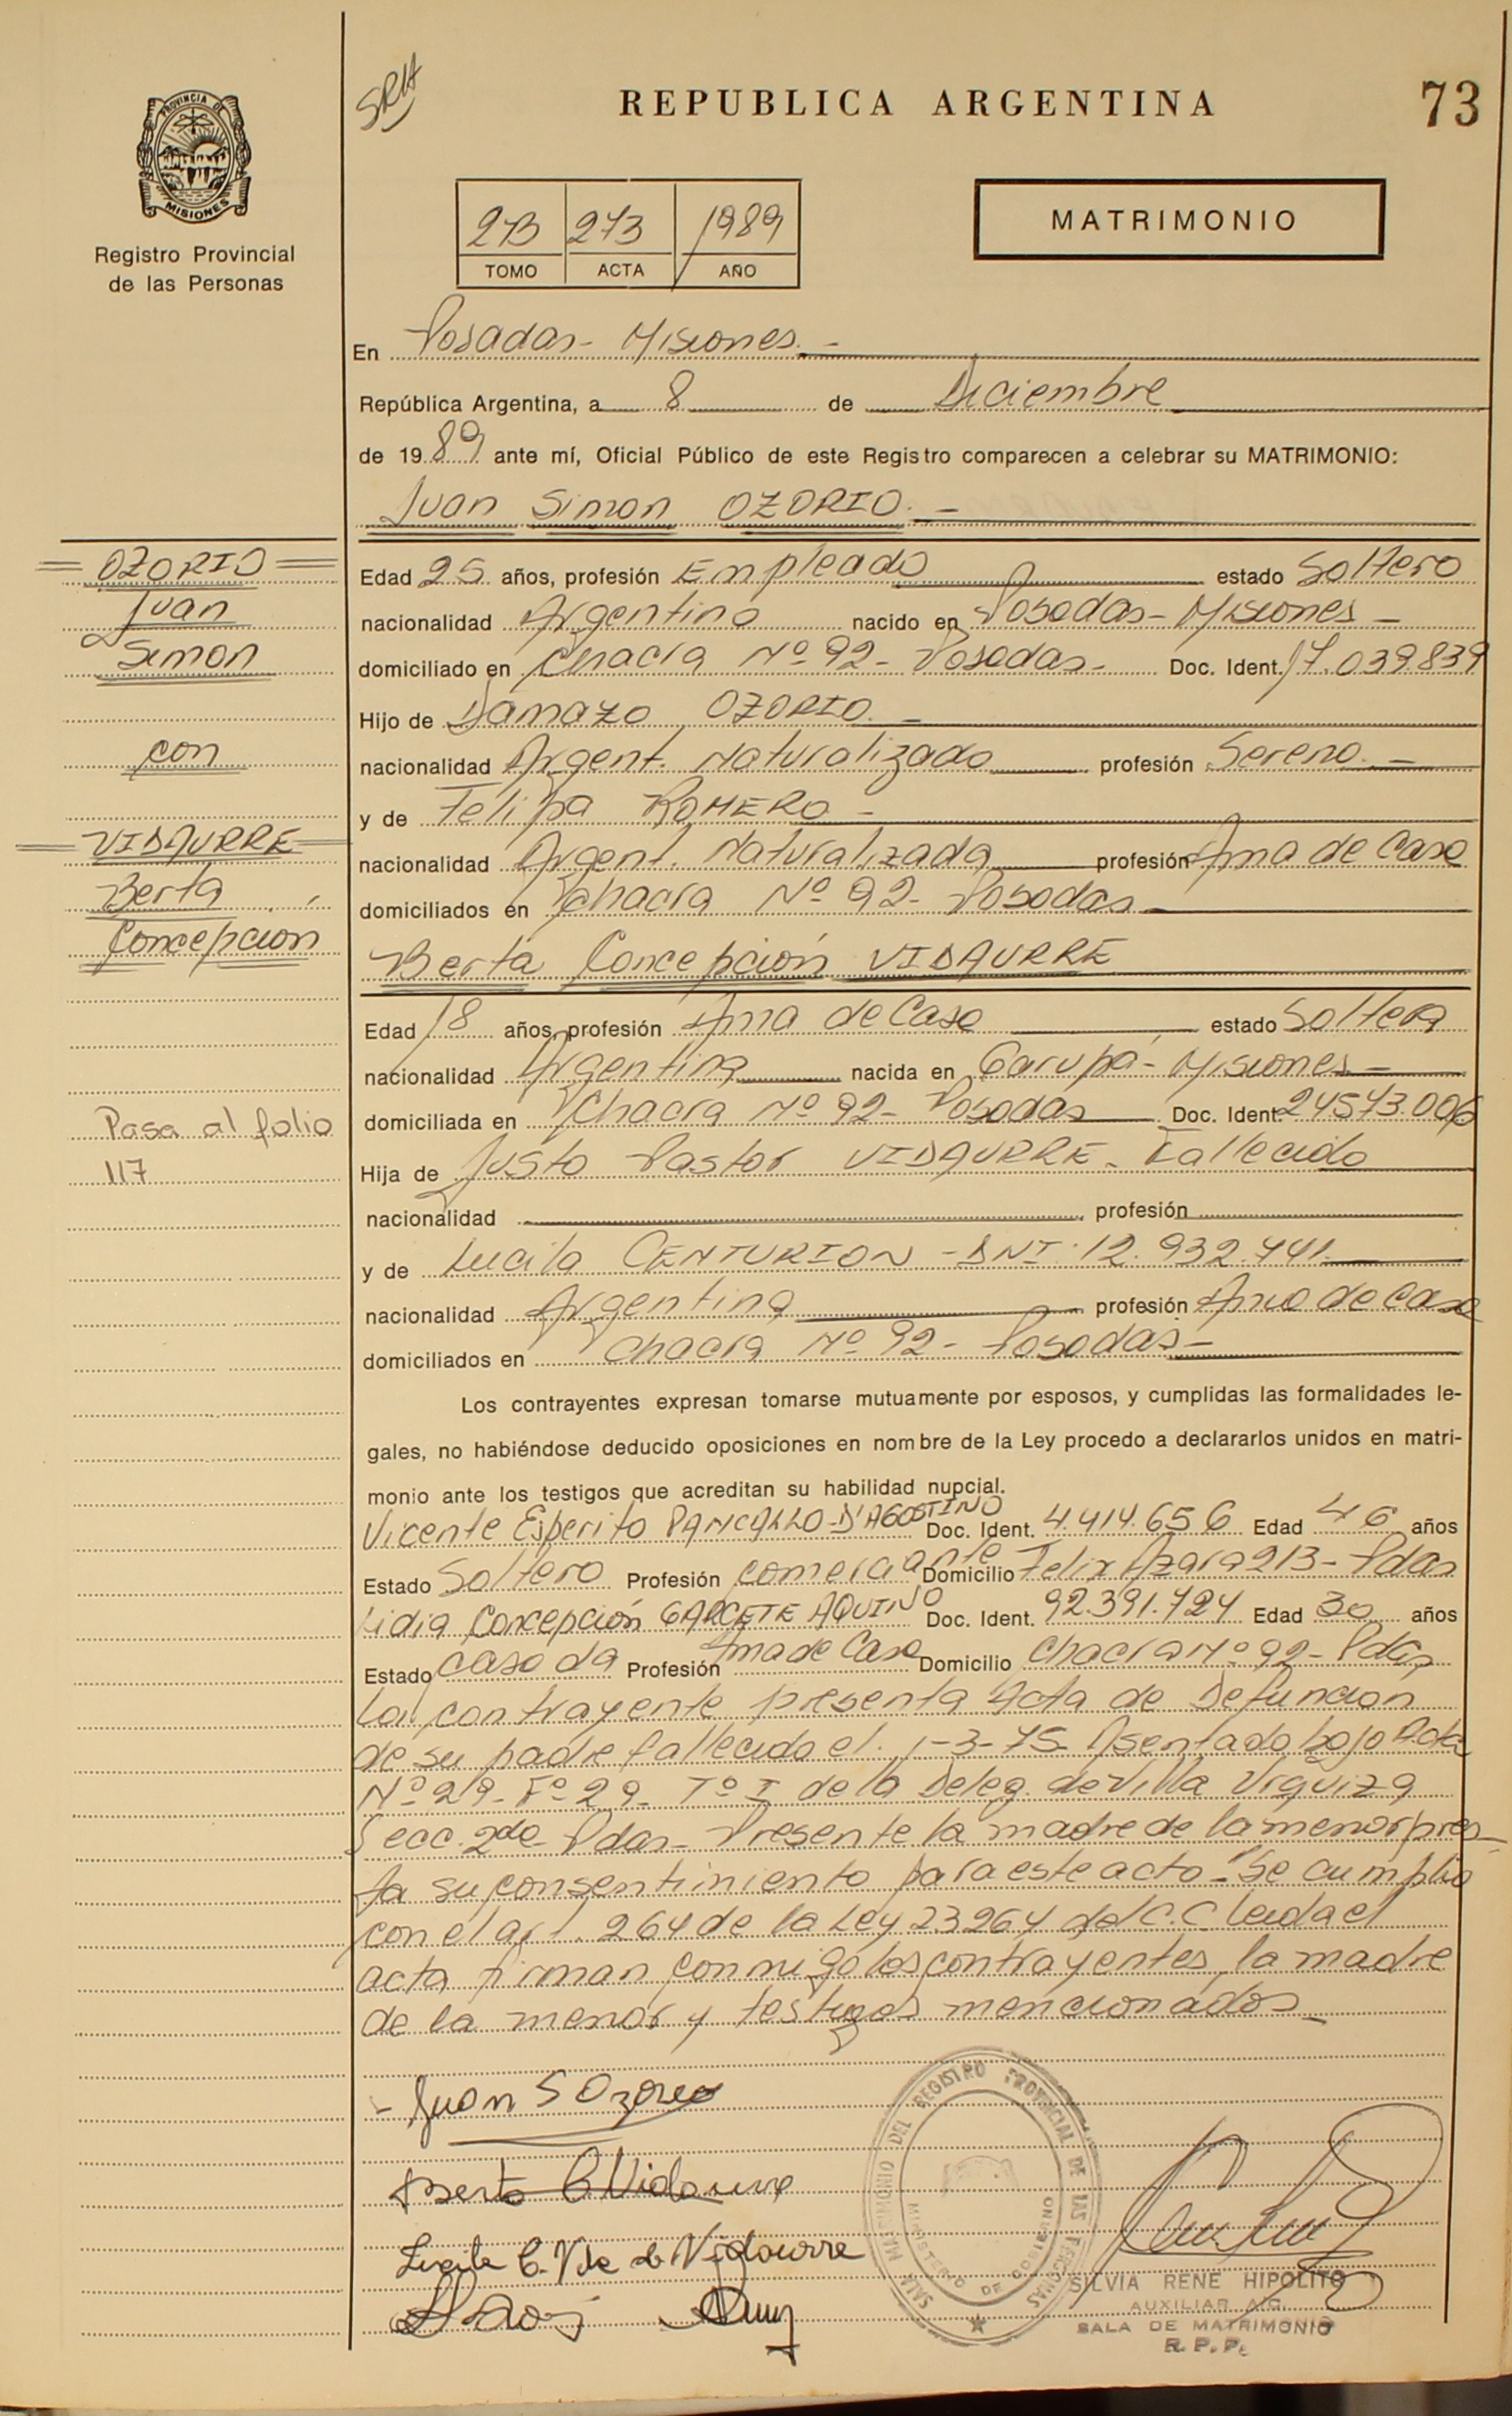 SRH
REPUBLICA ARGENTINA
73
PROVINCIA DE
MISIONES
Registro Provincial
de las Personas
273 273 1989
TOMO ACTA AÑO
MATRIMONIO
En Posadas - Misiones. -
República Argentina, a 8 de Diciembre
de 1989 ante mí, Oficial Público de este Registro comparecen a celebrar su MATRIMONIO:
Juan Simon OZORIO. -
OZORIO
Juan
Simon
con
VIDAURRE
Berta
Concepcion
Pasa al folio
117
Edad 25 años, profesión Empleado estado Soltero
nacionalidad Argentina nacido en Posadas - Misiones -
domiciliado en Chacra Nº 92 - Posadas - Doc. Ident. 17.039.839
Hijo de Damazo OZORIO. -
nacionalidad Argent. Naturalizado profesión Sereno. -
y de Felipa ROMERO -
nacionalidad Argent. Naturalizada profesión Ama de Casa
domiciliados en Chacra Nº 92 - Posadas -
Berta Concepción VIDAURRE
Edad 18 años, profesión Ama de Casa estado Soltera
nacionalidad Argentina nacida en Garupá - Misiones -
domiciliada en Chacra Nº 92 - Posadas Doc. Ident. 24.573.006
Hija de Justo Pastor VIDAURRE - Fallecido
nacionalidad profesión
y de Lucila CENTURION - DNI: 12.932.441.
nacionalidad Argentina profesión Ama de Casa
domiciliados en Chacra Nº 92 - Posadas -
Los contrayentes expresan tomarse mutuamente por esposos, y cumplidas las formalidades le-
gales, no habiéndose deducido oposiciones en nombre de la Ley procedo a declararlos unidos en matri-
monio ante los testigos que acreditan su habilidad nupcial.
Vicente Esperito D'AGOSTINO Doc. Ident. 4.414.656 Edad 46 años
Estado Soltero Profesión comerciante Domicilio Felix Azara 213 - Pdas
Lidia Concepción GARCETE AQUINO Doc. Ident. 92.391.724 Edad 30 años
Estado casada Profesión Ama de Casa Domicilio Chacra Nº 92 - Pdas
La contrayente presenta Acta de Defunción
de su padre fallecido el 1-3-75 Asentado bajo Acta
Nº 29 - Fº 29 - Tº I de la Deleg. de Villa Urquiza
Secc. 2da - Pdas - Presente la madre de la menor pres-
ta su consentimiento para este acto - Se cumplio
con el art. 264 de la Ley 23264 del C.C leida el
acta firman conmigo los contrayentes, la madre
de la menor y testigos mencionados -
- Juan S Ozorio
Berta C. Vidaurre
Lucila C. Vda de Vidaurre
SALA MATRIMONIO DEL REGISTRO PROVINCIAL DE LAS PERSONAS
MINISTERIO DE GOBIERNO
SILVIA RENE HIPOLITO
AUXILIAR A/C
SALA DE MATRIMONIO
R. P. P.